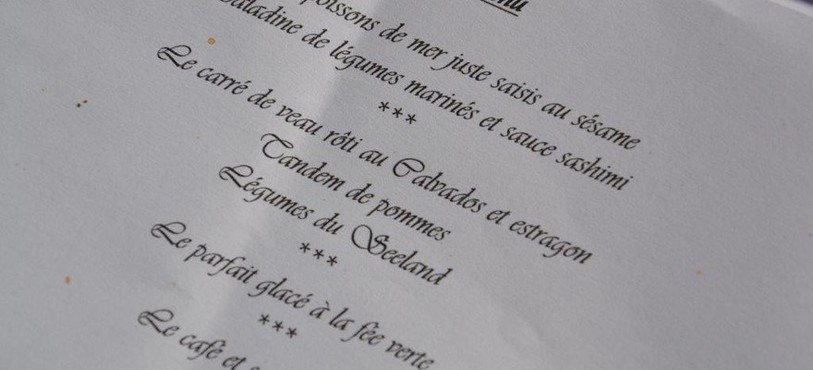 poissons de mer juste saisis au sésame
de légumes marinés et sauce sashimi
***
Le carré de veau rôti au Calvados et estragon
Tandem de pommes
Légumes du Seeland
***
Le parfait glacé à la fée verte
***
Le café et